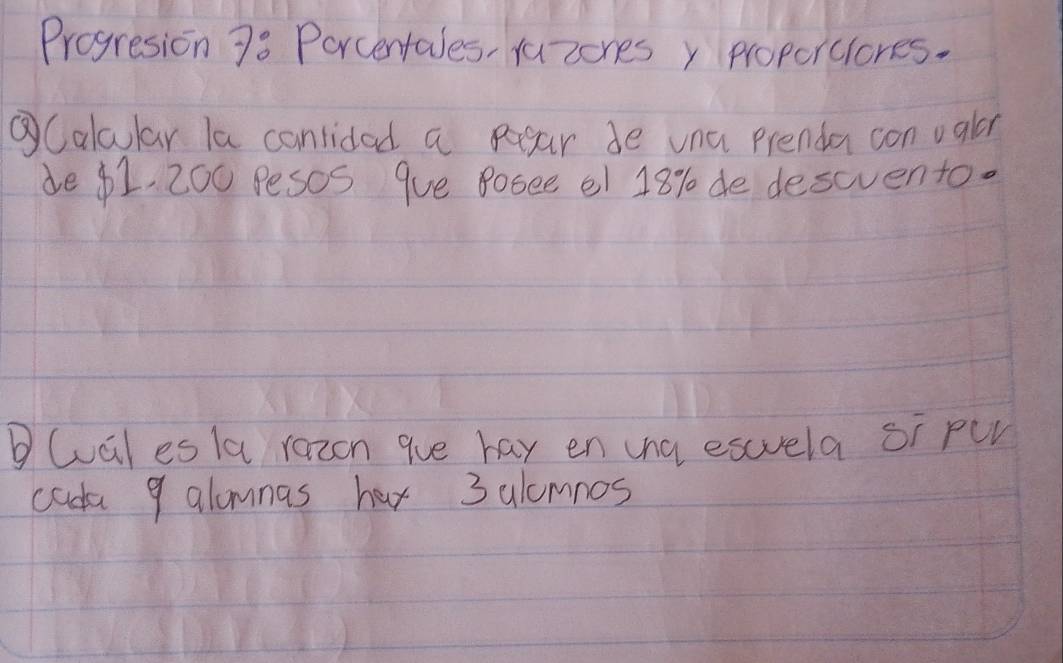 Progresión 7: Porcentajes, razones y proporciones.
a) Calcular la cantidad a pagar de una prenda con valor
de $1.200 pesos que posee el 18% de descuento.
b) Cuál es la razon que hay en una escuela si por
cada 9 alumnas hay 3 alumnos